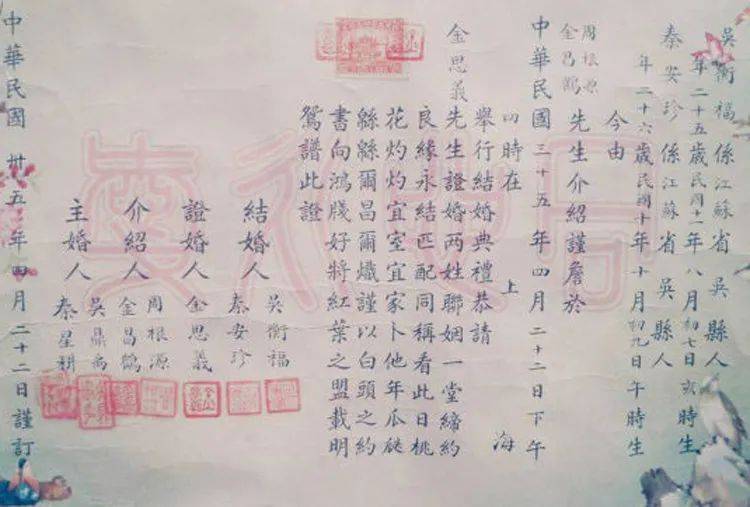 吳衡福 係江蘇省 吳縣人
年二十五歲民國十一年八月初七日亥時生
秦安珍 係江蘇省 吳縣人
年二十六歲民國十年十月初九日午時生
今由
周根源
金昌鶴 先生介紹謹詹於
中華民國三十五年四月二十二日下午
四時在 上海
舉行結婚典禮恭請
金思義 先生證婚两姓聯姻一堂締約
良緣永結匹配同稱看此日桃
花灼灼宜室宜家卜他年瓜瓞
緜緜爾昌爾熾謹以白頭之約
書向鴻牋好將紅葉之盟載明
鴛譜此證
結婚人 吳衡福
秦安珍
證婚人 金思義
介紹人 周根源
金昌鶴
主婚人 吳鼎禹
秦星耕
中華民國卅五年四月二十二日謹訂